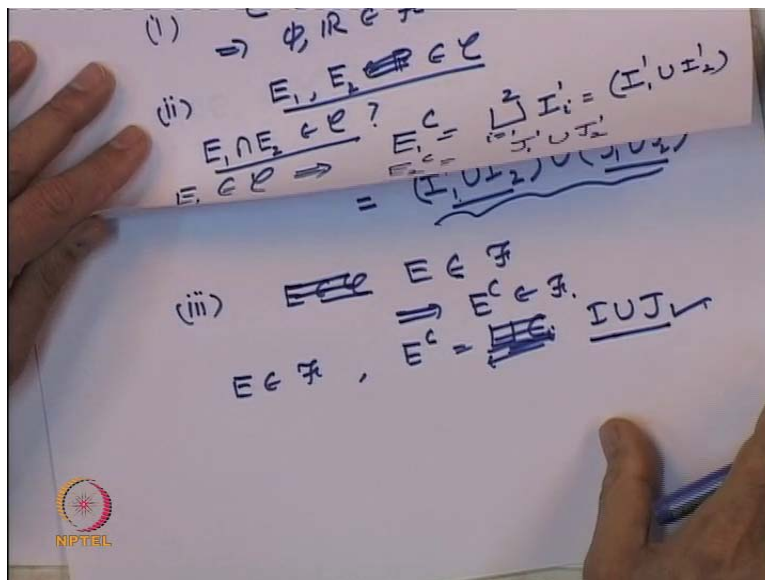 (i)
⇒ Φ, ℝ ∈ ℱ
(ii) E₁, E₂ ∈ 𝒞
E₁ ∩ E₂ ∈ 𝒞 ?
E₁ ∈ 𝒞 ⇒ E₁ᶜ = ⊔ᵢ₌₁² Iᵢ' = (I₁' ∪ I₂')
E₂ᶜ = J₁' ∪ J₂'
= (I₁' ∪ I₂') ∪ (J₁' ∪ J₂')
(iii) E ∈ ℱ
⇒ Eᶜ ∈ ℱ.
E ∈ ℱ , Eᶜ = I ∪ J ✓
NPTEL